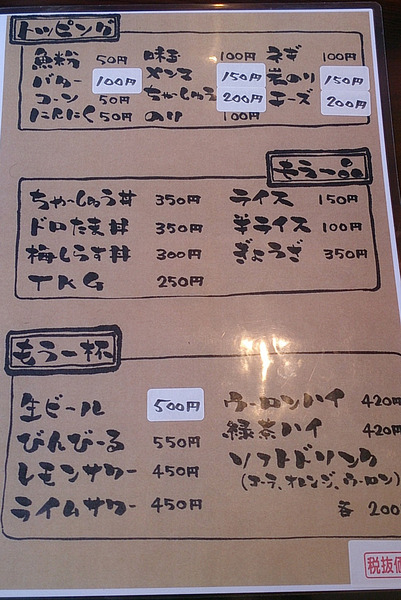 トッピング
魚粉 50円 味玉 100円 ネギ 100円
バター 100円 メンマ 150円 岩のり 150円
コーン 50円 ちゃーしゅう 200円 チーズ 200円
にんにく 50円 のり 100円
もう一品
ちゃーしゅう丼 350円 ライス 150円
ドロたま丼 350円 半ライス 100円
梅しらす丼 300円 ぎょうざ 350円
TKG 250円
もう一杯
生ビール 500円 ウーロンハイ 420円
びんびーる 550円 緑茶ハイ 420円
レモンサワー 450円 ソフトドリンク
(コーラ、オレンジ、ウーロン)
ライムサワー 450円 各 200
税抜価